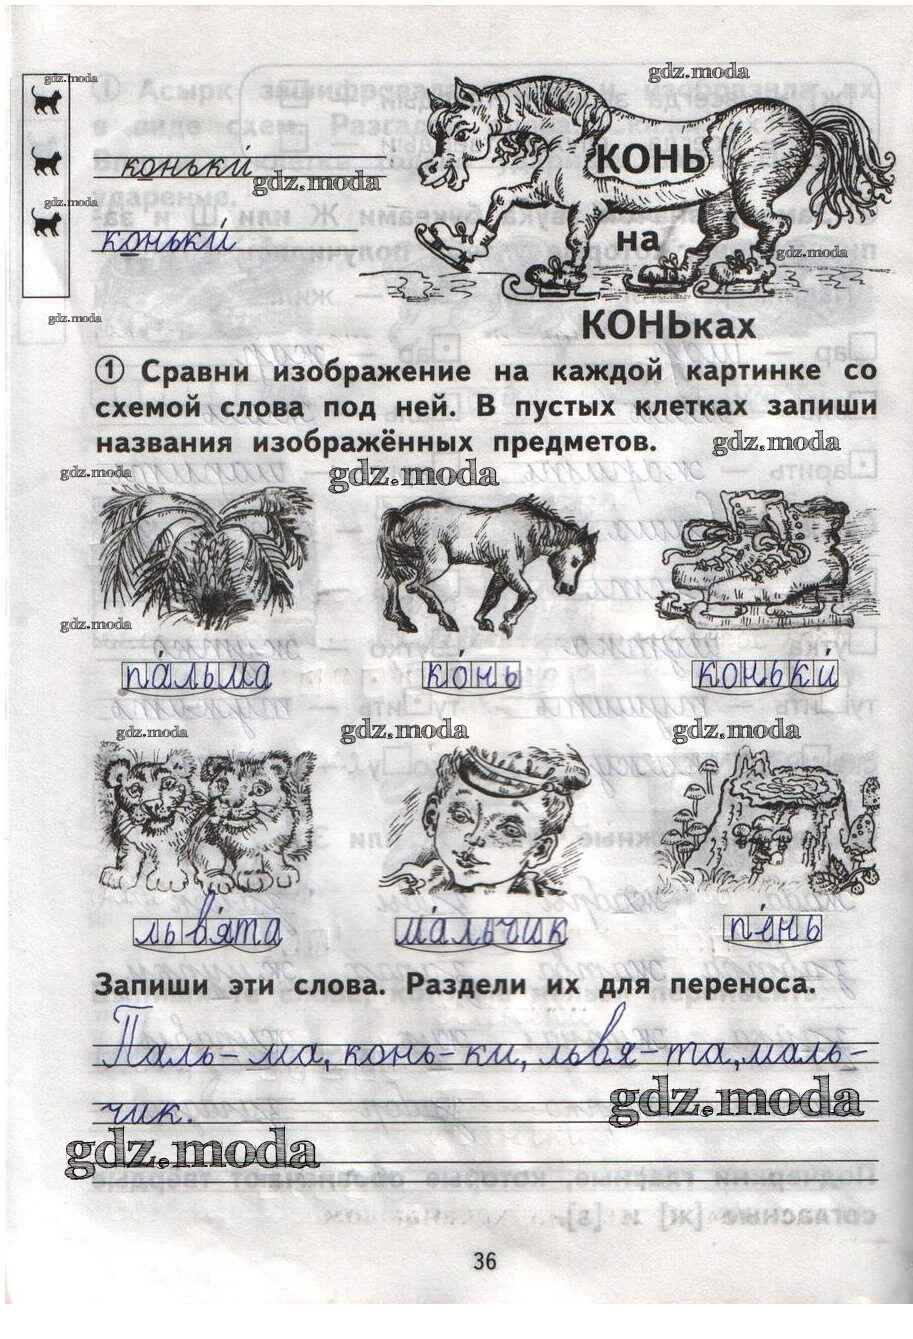 gdz.moda
gdz.moda
КОНЬ
коньки́
gdz.moda
gdz.moda
коньки́
на
gdz.moda
gdz.moda
КОНЬках
① Сравни изображение на каждой картинке со
схемой слова под ней. В пустых клетках запиши
названия изображённых предметов.
gdz.moda
gdz.moda
gdz.moda
gdz.moda
па́льма
ко́нь
коньки́
gdz.moda
gdz.moda
gdz.moda
львя́та
ма́льчик
пе́нь
Запиши эти слова. Раздели их для переноса.
Паль-ма, конь-ки, львя-та, маль-
чик.
gdz.moda
gdz.moda
36